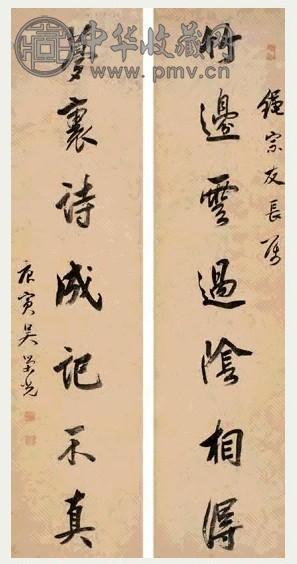 中华收藏网
www.pmv.cn
繩宗友長屬
竹邊雲過陰相得
夢裏詩成記不真
庚寅吳榮光